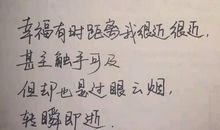 幸福有时距离我很近很近，
甚至触手可及
但却也是过眼云烟，
转瞬即逝。